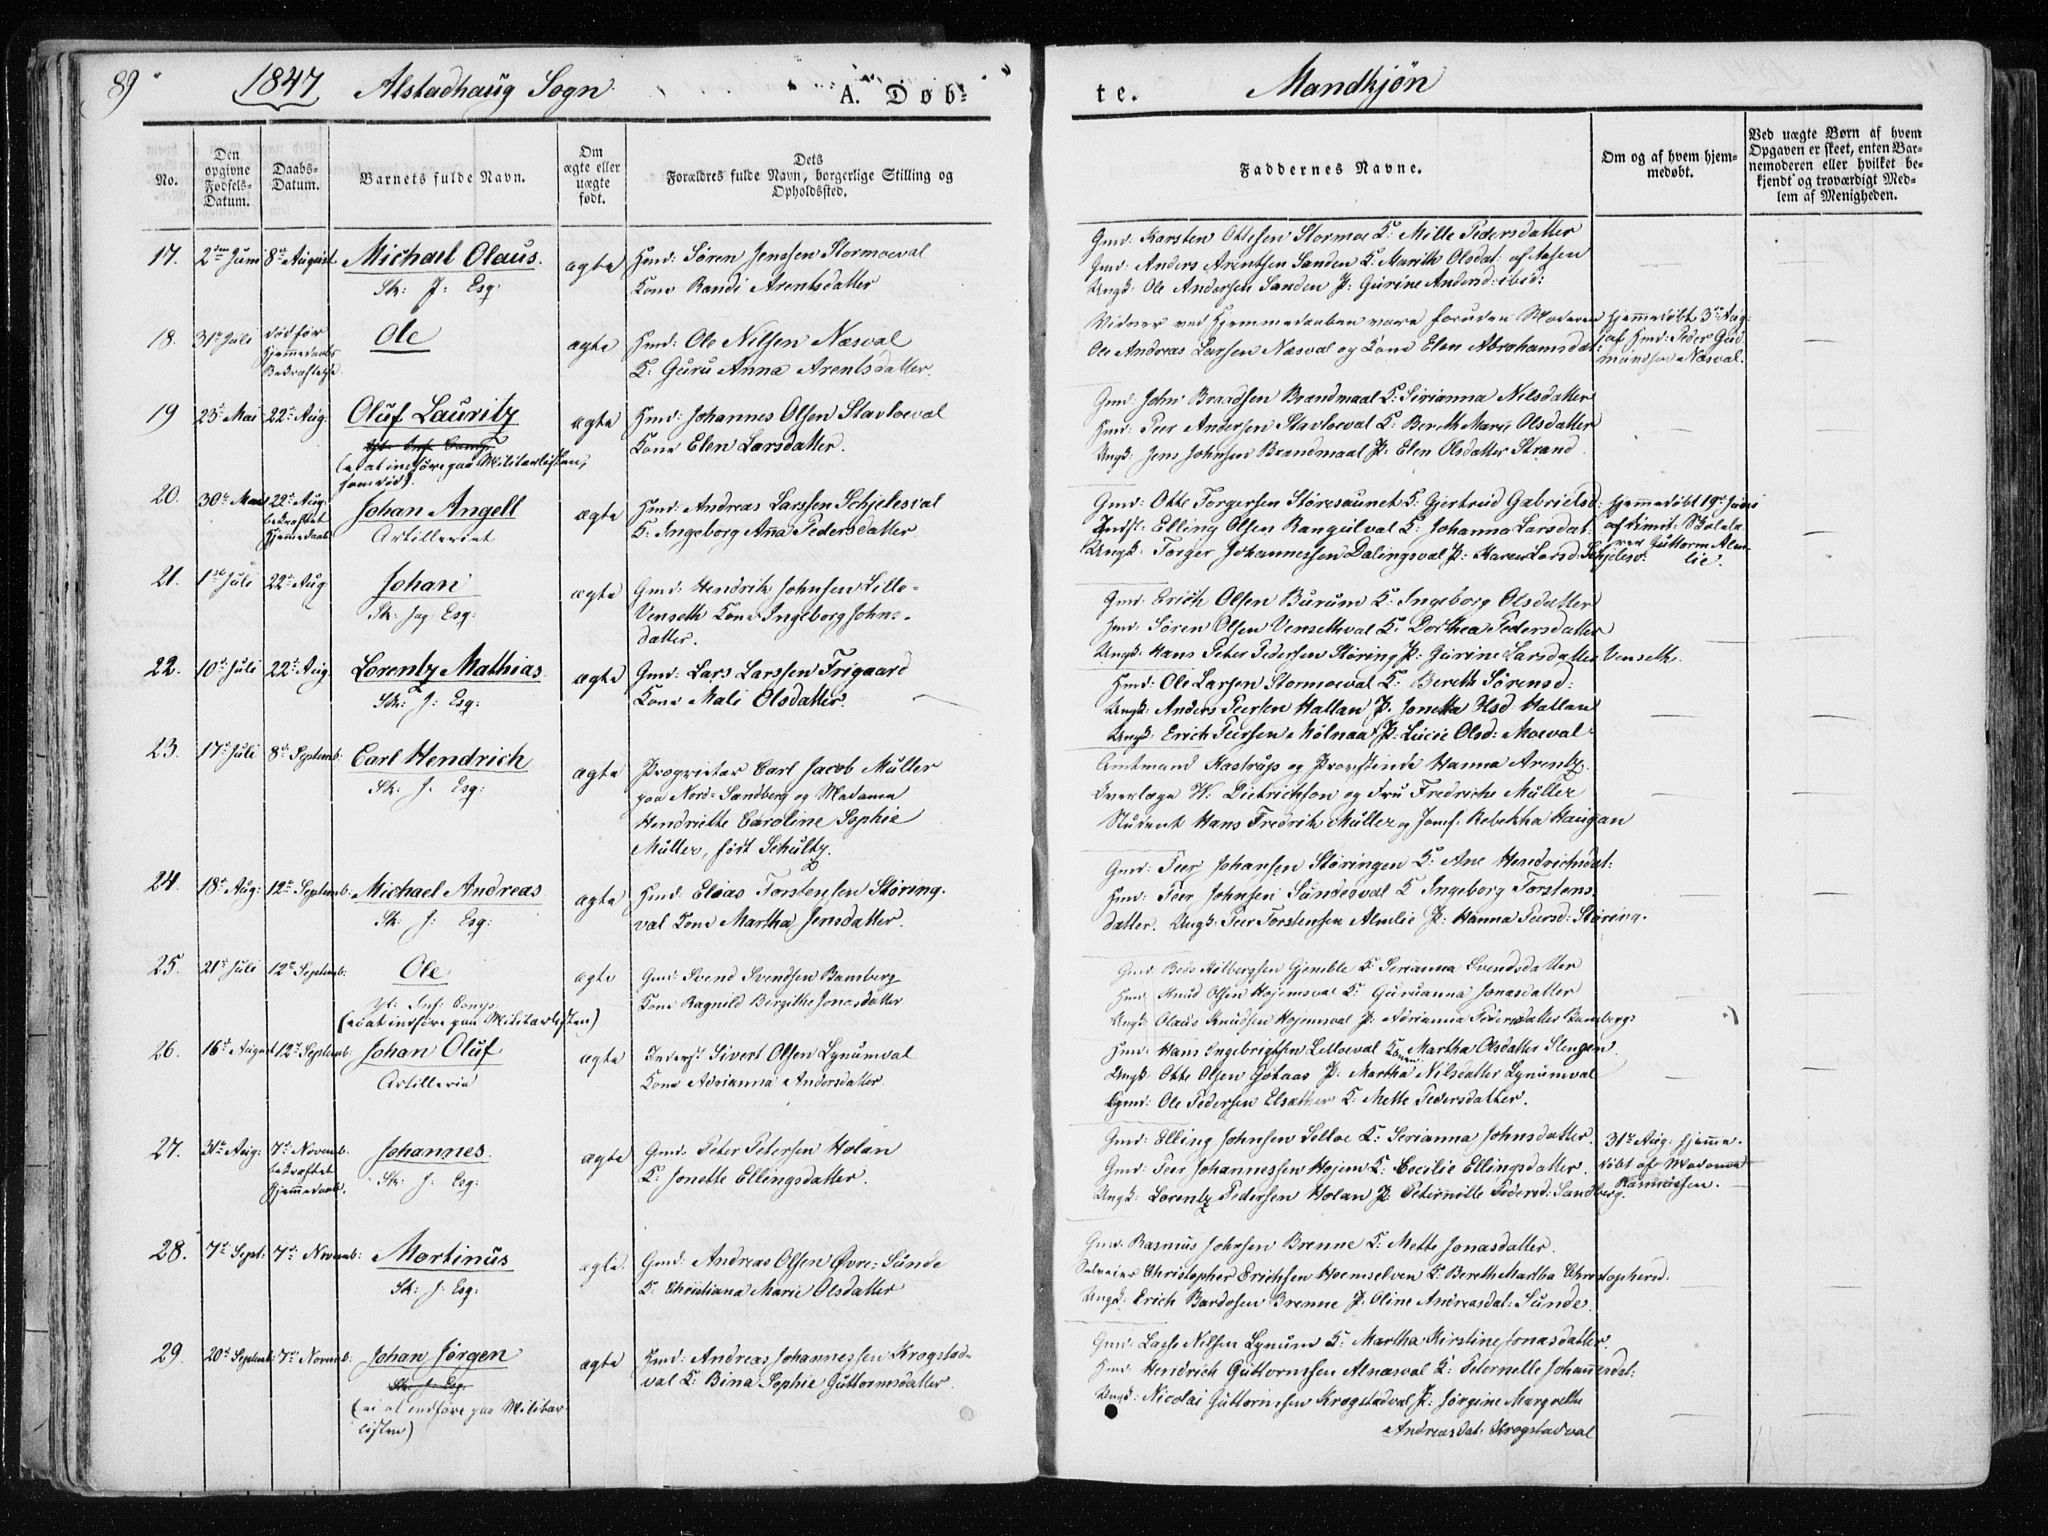 89
1847 Alstadhaug Sogn. A. Døb-
te. Mandkjøn
No.
Den opgivne Fødsels-Datum.
Daabs-Datum.
Barnets fulde Navn.
Om ægte eller uægte født.
Dets Forældres fulde Navn, borgerlige Stilling og Opholdssted.
Faddernes Navne.
Om og af hvem hjemmedøbt.
Ved uægte Børn af hvem Opgaven er skeet, enten Barnemoderen eller hvilket bekjendt og troværdigt Medlem af Menigheden.
17. 2den Juni 8de August Michael Olaus. ægte
Sk: J: Esq:
Hmd: Sören Jenssen Stormoeval
Kone Randi Arentsdatter
Gmd: Karsten Ottesen Stormoe K: Mille Pedersdatter
Gmd: Anders Arentsen Sanden K: Marith Olsdat: af Aasen
Ungk: Ole Andersen Sanden P: Gurine Andersd: ibid:
18. 31te Juli død før Hjemmedaabs Bekræftelse. Ole ægte
Hmd: Ole Nilsen Næsval
K: Guru Anna Arentsdatter.
Vidner ved Hjemmedaaben vare foruden Moderen
Ole Andreas Larsen Næsval og Kone Elen Abrahamsdat:
Hjemmedøbt 3die Aug:
af Hmd: Peder Gud
mundsen Næsval.
19 23de Mai 22de Aug: Oluf Lauritz ægte
(ei at indføre paa Militærlisten,
som død).
Hmd: Johannes Olsen Stavloeval
Kone Elen Larsdatter.
Gmd: John Baardsen Brandmaal K: Sirianna Nilsdatter
Hmd: Peer Andersen Stavloeval K: Bereth Marie Olsdatter
Ungk: Jens Johnsen Brandmaal P: Elen Olsdatter Strand.
20. 30te Mai 22de Aug: bekræftet Hjemmedaab Johan Angell ægte
Artilleriet
Hmd: Andreas Larssen Schjelesval
K: Ingeborg Ana Pedersdatter.
Gmd: Otte Torgersen Støresaunet K: Gjertrud Gabrielsd:
Indst: Elling Olsen Rangulval K: Johanna Larsdat.
Ungk: Torger Johannessen Dalingsval P: Karen Larsd: Schjelesv:
Hjemmedøbt 19de Juni
af Skolelærer Guttorm Alm-
lie.
21. 1ste Juli 22de Aug Johan ægte
Sk: Jæg Esq:
Gmd: Hendrik Johnsen Lille-
Venseth Kone Ingeborg Johns-
datter.
Gmd: Erich Olsen Burum K: Ingeborg Olsdatter
Hmd: Sören Olsen Vensethval K: Dorthea Pedersdatter
Ungk: Hans Peter Pedersen Störing P: Gurine Larsdatter Venseth.
22. 10de Juli 22de Aug. Lorentz Mathias. ægte
Sk: J: Esq:
Gmd: Lars Larssen Frigaard
Kone Mali Olsdatter.
Hmd: Ole Larsen Stormoeval K: Bereth Sörensd:
Ungk: Anders Peersen Hallan P. Jonetta Olsd Hallan
Ungk: Erich Peersen Mölnaa P: Lucie Olsd: Moeval
23. 17de Juli 8de Septemb: Carl Hendrich ægte
Sk: J. Esq:
Proprietær Carl Jacob Müller
paa Nord-Sandberg og Madame
Henriette Caroline Sophie
Müller, født Schultz.
Amtmand Kastrup og Provstinde Hanna Arentz.
Overlæge W: Dietrichson og Fru Fredriche Müller
Student Hans Fredrik Müller og Jomf. Rebekka Haugan
24. 18de Aug: 12te Septemb: Michael Andreas ægte
Sk: J: Esq:
Hmd: Elias Torstensen Støring.
val Kone Martha Jensdatter.
Gmd: Peer Johansen Støringen K: Ane Hendrichsdat:
Hmd: Peer Johnsen Sundesval K Ingeborg Torstens
datter. Ungk: Peer Torstensen Almlie P: Hanna Peersd: Støring.
25. 21de Juli 12te Septemb: Ole ægte
Yt: Inf: Comp.
(ei at indføre paa Militærlisten)
Gmd: Svend Svendsen Bamberg
Kone Ragnild Birgithe Jonasdatter
Gmd: Hilbergsen Gjemble K: Serianna Svendsdatter
Hmd: Knud Olsen Hojemsval K: Guruanna Jonasdatter
Ungk: Olaus Knudsen Hojemsval P: Adrianna Pedersdatter Bamberg:
26. 16de August 12te Septemb: Johan Oluf ægte
Artilleriet
Inderst Sivert Olsen Lynumval
Kone Adrianna Andersdatter
Hmd: Hans Ingebrigtsen Lelloeval Kone Martha Olsdatter Slengen.
Ungk: Otte Olsen Gotaas P: Martha Nilsdatter Lynumval
Gmd: Ole Pedersen Elsæther K: Mette Pedersdatter.
27. 31te Aug: 7de Novemb: bekræftet Hjemmedaab. Johannes. ægte
Sk: J: Esq:
Gmd: Peter Petersen Holan
K: Jonette Ellingsdatter.
Gmd: Elling Johnsen Lelloe K: Serianna Johnsdatter.
Gmd: Peer Johannessen Hojem K: Cecilie Ellingsdatter.
Ungk: Lorentz Pedersen Holan P. Peternille Pedersd: Sandberg.
31te Aug: hjemme-
døbt af Madame
Rasmussen.
28. 7de Sept: 7de Novemb: Martinus ægte.
Sk: J: Esq:
Gmd: Andreas Olsen Øvre-Sunde
K: Christiana Marie Olsdatter
Gmd: Rasmus Johnsen Brenne K: Mette Jonasdatter.
Selveier Christopher Erichsen Hoemselven K: Bereth Martha Christophersd.
Ungk: Erich Bardosen Brenne P. Oline Andreasdat: Sunde.
29. 20de Septemb: 7de Novemb: Johan Jørgen ægte
Sk: J: Esq:
(ei at indføre paa Militær-
listen)
Hmd: Andreas Johannessen Krogstad-
val K: Bina Sophie Guttormsdatter.
Gmd: Lasse Nilsen Lynum K: Martha Kirstine Jonasdatter.
Hmd: Hendrich Guttormsen Alnæsval K: Peternelle Johannesdat:
Ungk: Nicolai Guttormsen Krogstadval P: Jørgine Margrethe
Andreasdat: Krogstadval